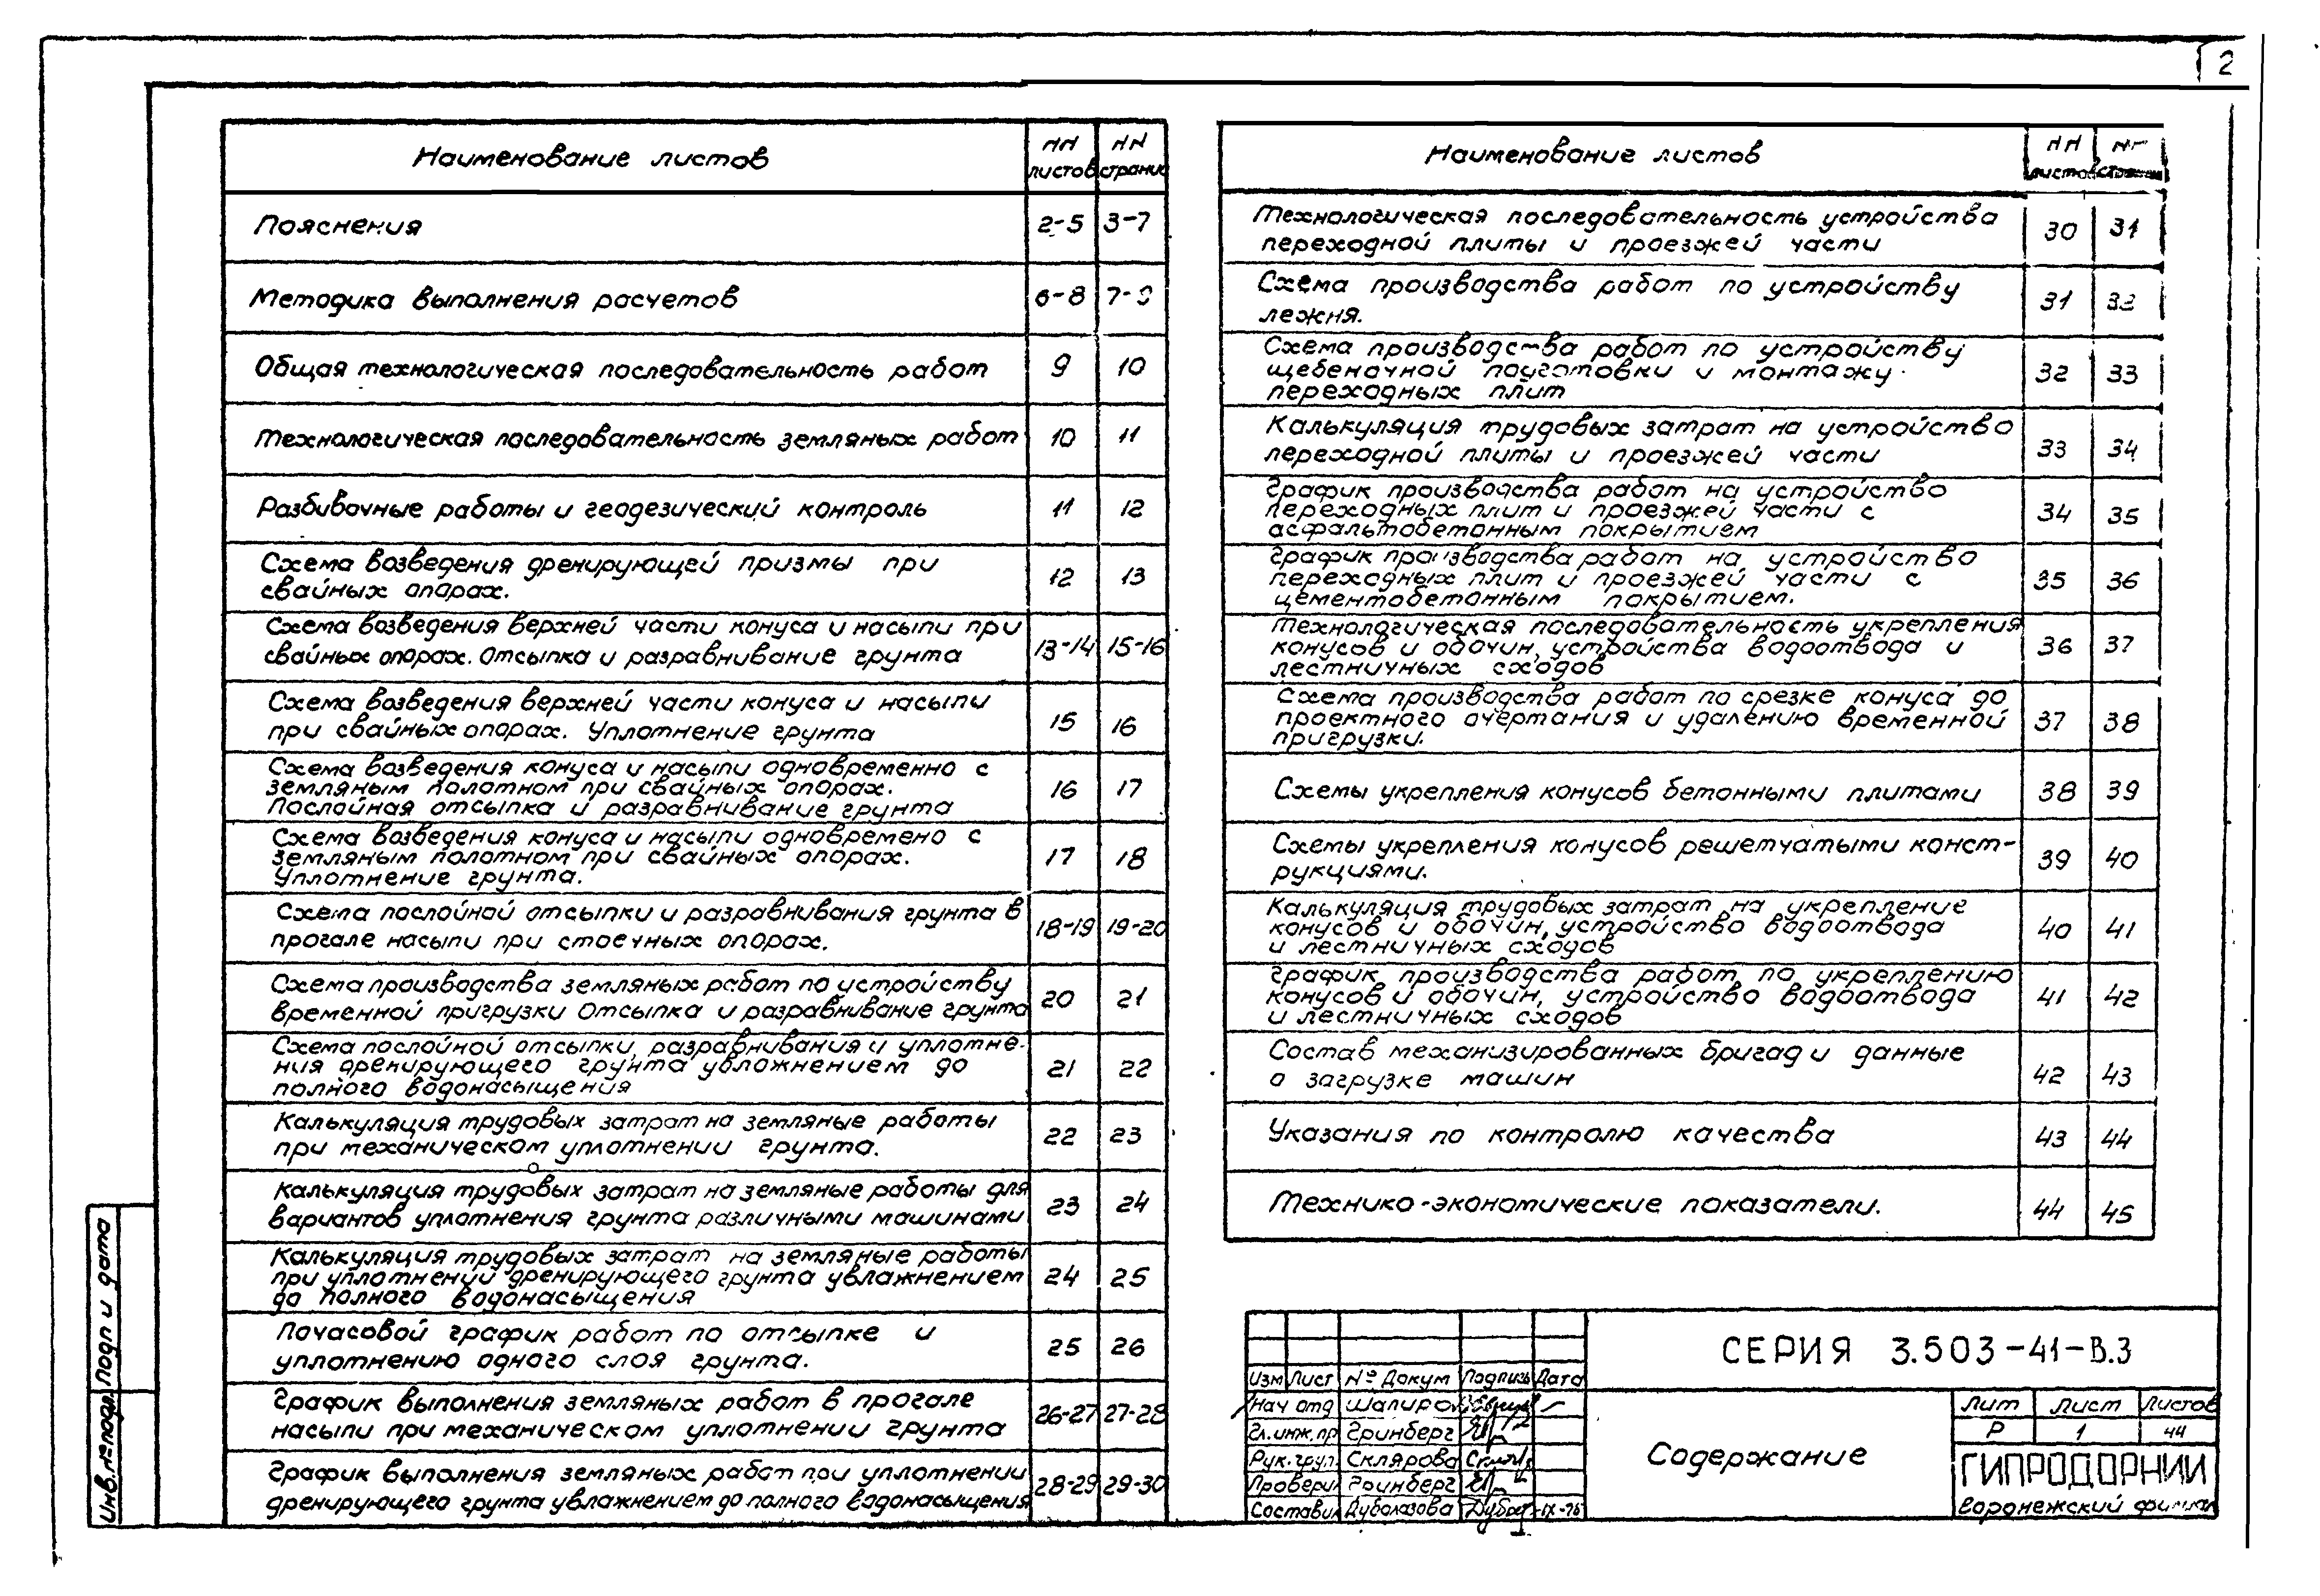 2
Наименование листов
NN листов
NN страниц
Пояснения 2-5 3-7
Методика выполнения расчетов 6-8 7-9
Общая технологическая последовательность работ 9 10
Технологическая последовательность земляных работ 10 11
Разбивочные работы и геодезический контроль 11 12
Схема возведения дренирующей призмы при
свайных опорах. 12 13
Схема возведения верхней части конуса и насыпи при
свайных опорах. Отсыпка и разравнивание грунта 13-14 15-16
Схема возведения верхней части конуса и насыпи
при свайных опорах. Уплотнение грунта 15 16
Схема возведения конуса и насыпи одновременно с
земляным полотном при свайных опорах.
Послойная отсыпка и разравнивание грунта 16 17
Схема возведения конуса и насыпи одновремено с
земляным полотном при свайных опорах.
Уплотнение грунта. 17 18
Схема послойной отсыпки и разравнивания грунта в
прогале насыпи при стоечных опорах. 18-19 19-20
Схема производства земляных работ по устройству
временной пригрузки Отсыпка и разравнивание грунта 20 21
Схема послойной отсыпки, разравнивания и уплотне-
ния дренирующего грунта увложнением до
полного водонасыщения 21 22
Калькуляция трудовых затрат на земляные работы
при механическом уплотнении грунта. 22 23
Калькуляция трудовых затрат на земляные работы для
вариантов уплотнения грунта различными машинами 23 24
Калькуляция трудовых затрат на земляные работы
при уплотнении дренирующего грунта увлажнением
до полного водонасыщения 24 25
Почасовой график работ по отсыпке и
уплотнению одного слоя грунта. 25 26
График выполнения земляных работ в прогале
насыпи при механическом уплотнении грунта 26-27 27-28
График выполнения земляных работ при уплотнении
дренирующего грунта увлажнением до полного водонасыщения 28-29 29-30
Наименование листов
NN листов
Технологическая последовательность устройства
переходной плиты и проезжей части 30 31
Схема производства работ по устройству
лежня. 31 32
Схема производства работ по устройству
щебеночной подготовки и монтажу
переходных плит 32 33
Калькуляция трудовых затрат на устройство
переходной плиты и проезжей части 33 34
График производства работ на устройство
переходных плит и проезжей части с
асфальтобетонным покрытием 34 35
График производства работ на устройство
переходных плит и проезжей части с
цементобетонным покрытием. 35 36
Технологическая последовательность укрепления
конусов и обочин, устройства водоотвода и
лестничных сходов 36 37
Схема производства работ по срезке конуса до
проектного очертания и удалению временной
пригрузки. 37 38
Схемы укрепления конусов бетонными плитами 38 39
Схемы укрепления конусов решетчатыми конст-
рукциями. 39 40
Калькуляция трудовых затрат на укрепление
конусов и обочин, устройство водоотвода
и лестничных сходов 40 41
График производства работ по укреплению
конусов и обочин, устройство водоотвода
и лестничных сходов 41 42
Состав механизированных бригад и данные
о загрузке машин 42 43
Указания по контролю качества 43 44
Технико-экономические показатели. 44 45
Изм Лист № Докум Подпись Дата
Нач отд Шапиро
Гл.инж.пр Гринберг
Рук.груп. Склярова
Проверил Гринберг
Составил Дуболазова
СЕРИЯ 3.503-41-В.3
Содержание
Лит Лист Листов
Р 1 44
ГИПРОДОРНИИ
Воронежский филиал
Инв.№подл. Подп и дата